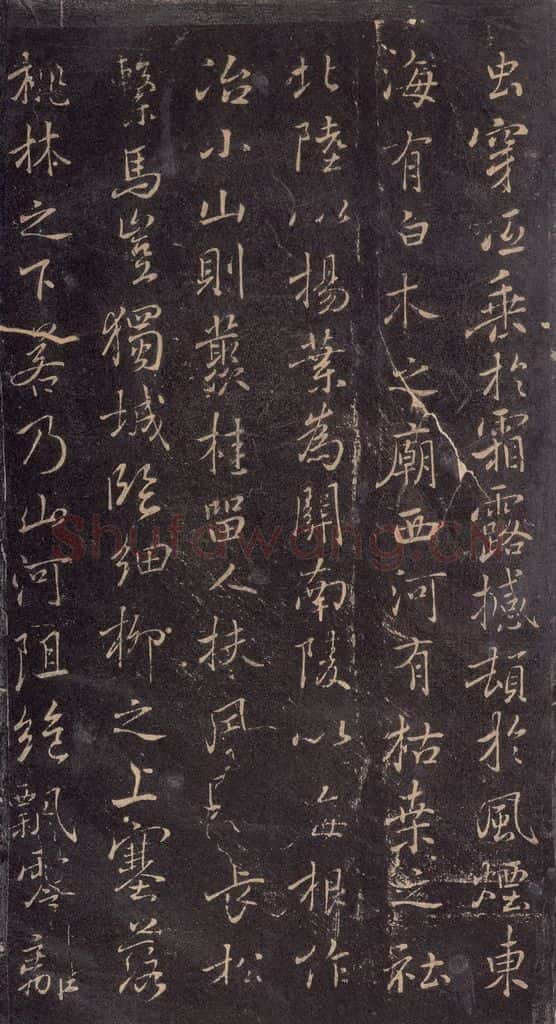 虫穿伍乖於霜露撼頓於風煙東
海有白木之廟西河有枯桒之社
北陸以揚葉為關南陵以每根作
冶小山則叢桂留人扶風長松
繫馬豈獨城臨細柳之上塞落
桃林之下若乃山河阻絶飄零離
Shufawang.cn